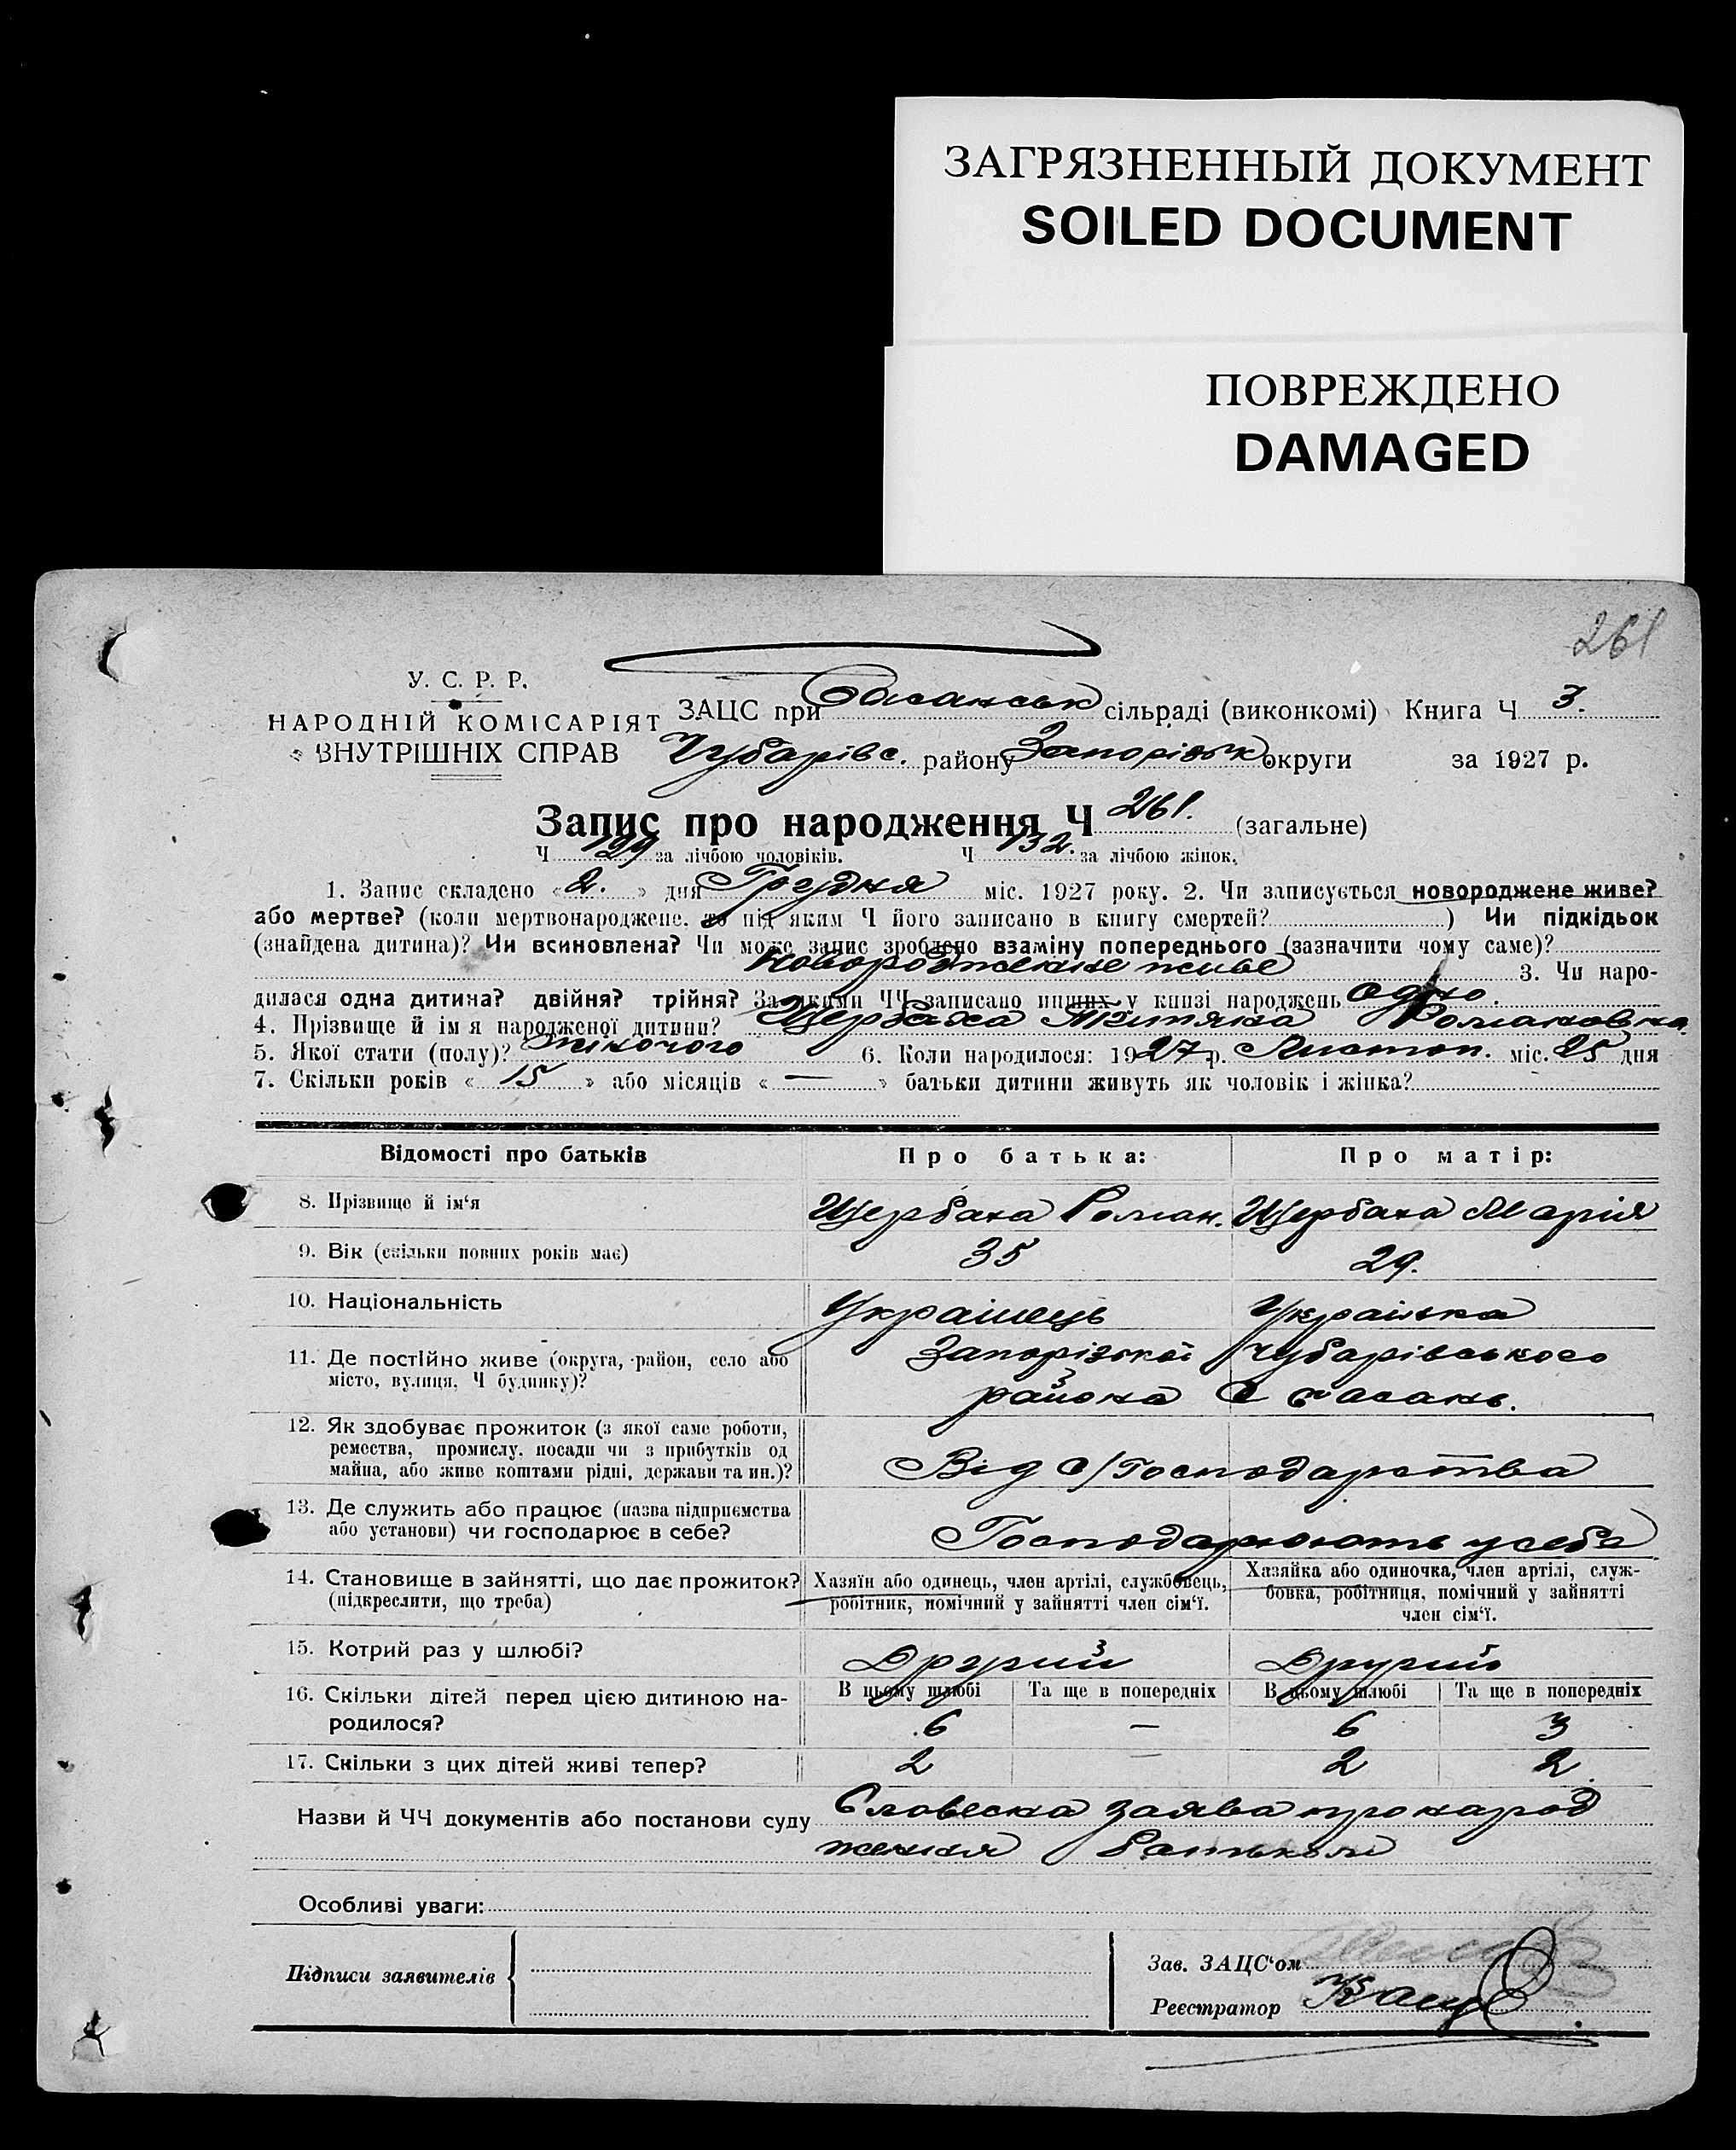 ЗАГРЯЗНЕННЫЙ ДОКУМЕНТ
SOILED DOCUMENT
ПОВРЕЖДЕНО
DAMAGED
261
У. С. Р. Р.
НАРОДНІЙ КОМІСАРІЯТ
ВНУТРІШНІХ СПРАВ
ЗАЦС при Басанськ сільраді (виконкомі) Книга Ч 3.
Чубарівс. району Запорізьк округи за 1927 р.
Запис про народження Ч 261. (загальне)
Ч 129 за лічбою чоловіків. Ч 132. за лічбою жінок.
1. Запис складено «2.» дня Грудня міс. 1927 року. 2. Чи записується новороджене живе?
або мертве? (коли мертвонароджене, то під яким Ч його записано в книгу смертей? ) Чи підкідьок
(знайдена дитина)? Чи всиновлена? Чи може запис зроблено взаміну попереднього (зазначити чому саме)?
новородженне живе 3. Чи наро-
дилася одна дитина? двійня? трійня? За якими ЧЧ записано инших у книзі народжень одно.
4. Прізвище й ім я народженої дитини? Щербаха Романовна.
5. Якої стати (полу)? жіночого 6. Коли народилося: 1927 р. Листоп. міс. 25 дня
7. Скільки років «15» або місяців «—» батьки дитини живуть як чоловік і жінка?
Відомості про батьків Про батька: Про матір:
8. Прізвище й ім‘я Щербаха Роман. Щербаха Марія
9. Вік (скільки повних років має) 35 29.
10. Національність Українець Українка
11. Де постійно живе (округа, район, село або Запорізької Чубарівського
місто, вулиця, Ч будинку)? района с Басань.
12. Як здобуває прожиток (з якої саме роботи,
ремества, промислу, посади чи з прибутків од
майна, або живе коштами рідні, держави та ин.)? Від с/Господарства
13. Де служить або працює (назва підприємства
або установи) чи господарює в себе? Господарюють усебе
14. Становище в зайнятті, що дає прожиток? Хазяїн або одинець, член артілі, службовець, Хазяйка або одиночка, член артілі, служ-
(підкреслити, що треба) робітник, помічний у зайнятті член сім‘ї. бовка, робітниця, помічний у зайнятті
член сім‘ї.
15. Котрий раз у шлюбі? Другий Другий
16. Скільки дітей перед цією дитиною на- В цьому шлюбі Та ще в попередніх В цьому шлюбі Та ще в попередніх
родилося? 6 — 6 3
17. Скільки з цих дітей живі тепер? 2 — 2 2
Назви й ЧЧ документів або постанови суду Словесна заява про народ
ження батьком
Особливі уваги:
Підписи заявителів
Зав. ЗАЦС‘ом
Реєстратор